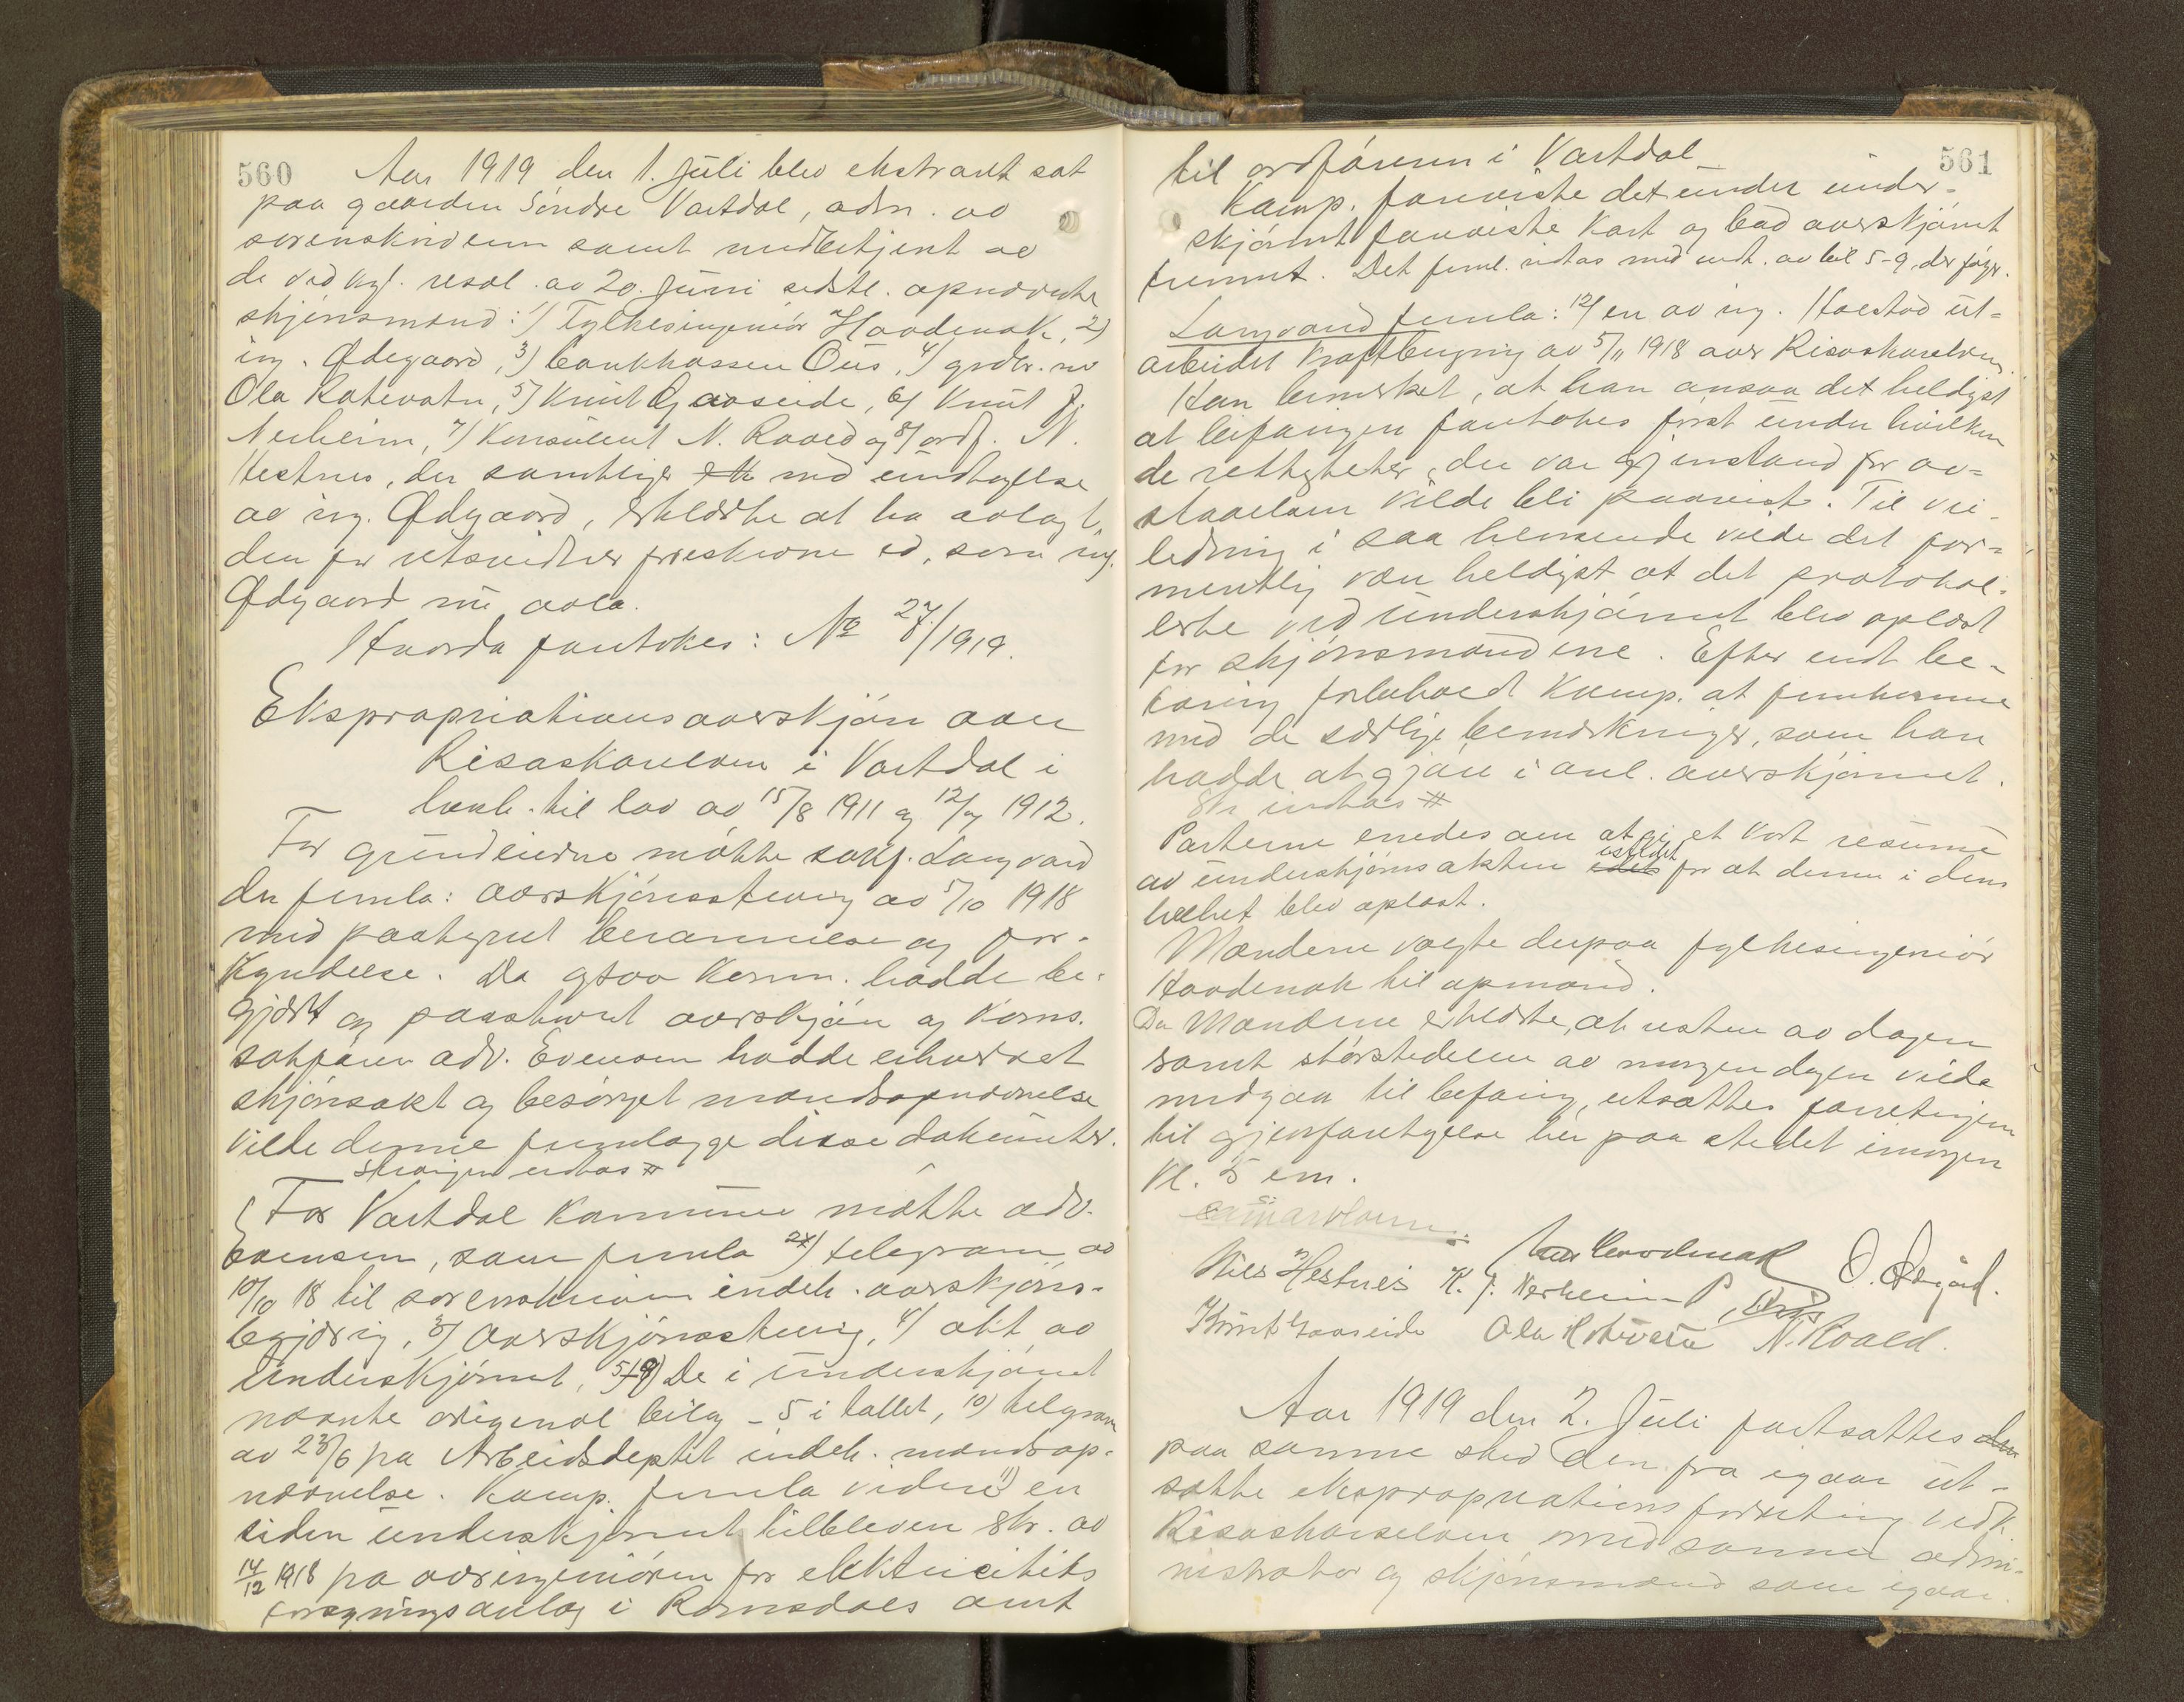 560
Aar 1919 den 1. Juli blev ekstraret sat
paa gaarden Søndre Vartdal, adm. av
sorenskriveren samt medbetjent av
de ved kgl. resol. av 20. Juni sidstl. opnævnte
skjønsmænd: 1) Fylkesingeniør Haavdenak, 2)
ing. Ødegaard, 3) bankkasser Øus, 4) grdbr. no
Ola Rotevatn, 5) Knut Gaaseide, 6) Knut J.
Nerheim, 7) Konsulent N. Roald og 8) ordf. N.
Hestnes, der samtlige med undtagelse
av ing. Ødegaard, erklærte at ha avlagt
den for retsvidner foreskrevne ed, som ing.
Ødegaard nu avla.
Hvorda foretokes: No 27/1919.
Ekspropriationsoverskjøn over
Risaskarelven i Vartdal i
henh. til lov av 15/8 1911 og 12/7 1912.
For grundeierne møtte sakf. Langvand
der fremla: overskjønsstevning av 5/10 1918
med paategnet berammelse og for-
kyndelse. Da ogsaa komm. hadde be-
gjært og paastevnet overskjøn og koms.
sakfører adv. Evensen hadde erhvervet
skjønsakt og besørget mandsopnævnelse
vilde denne fremlægge disse dokumenter.
Stevningen indtas #
For Vartdal kommune møtte adv.
Evensen, som fremla 2) telegram av
10/10 18 til sorenskriveren indeh. overskjøns-
begjæring, 3) Overskjønsstevning, 4) akt av
Underskjønnet, 5-9) De i underskjønnet
nævnte original bilag - 5 i tallet, 10) telegram
av 23/6 fra Arbeidsdeptet indeh. mandsop-
nævnelse. Komp. fremla videre 11) en
siden underskjønnet tilbleven skr. av
14/12 1918 fra overingeniøren for elektricitets
forsyningsanlæg i Romsdals amt
561
til ordføreren i Vartdal
Komp. foreviste det under under-
skjønnet foreviste kart og bad overskjønnet
fremmet. Det freml. indtas med undt. av bil 5-9, der følger.
Langvand fremla: 12) en av ing. Holstad ut-
arbeidet kraftberegning av 5/11 1918 over Risaskarelven.
Han bemerket, at han ansaa det heldigst
at befaringen foretokes først under hvilken
de rettigheter, der var gjenstand for av-
staaelsen vilde bli paavist. Til vei-
ledning i saa henseende vilde det for-
mentlig være heldigst at det protokol-
lerte ved underskjønnet blev oplæst
for skjønsmændene. Efter endt be-
faring forbeholdt Komp. at fremkomme
med de særlige bemerkninger, som han
hadde at gjøre i anl. overskjønnet.
Skr indtas #
Parterne enedes om at gi et kort resumé
av underskjønsakten istedet for at denne i dens
helhet blev oplæst.
Mændene valgte derpaa fylkesingeniør
Haavdenak til opmand.
Da Mændene erklærte, at resten av dagen
samt størstedelen av morgendagen vilde
medgaa til befaring, utsattes forretningen
til gjenforetagelse her paa stedet imorgen
kl. 5 em.
Haavdenak O. Ødegård.
Nils Hestnes K. J. Nerheim P. Øus
Knut Gaaseide Ola Rotevatn N. Roald.
Aar 1919 den 2. Juli fortsattes den
paa samme sted den fra igaar ut-
satte ekspropriationsforretning vedk.
Risaskarelven med samme admi-
nistrator og skjønsmænd som igaar.